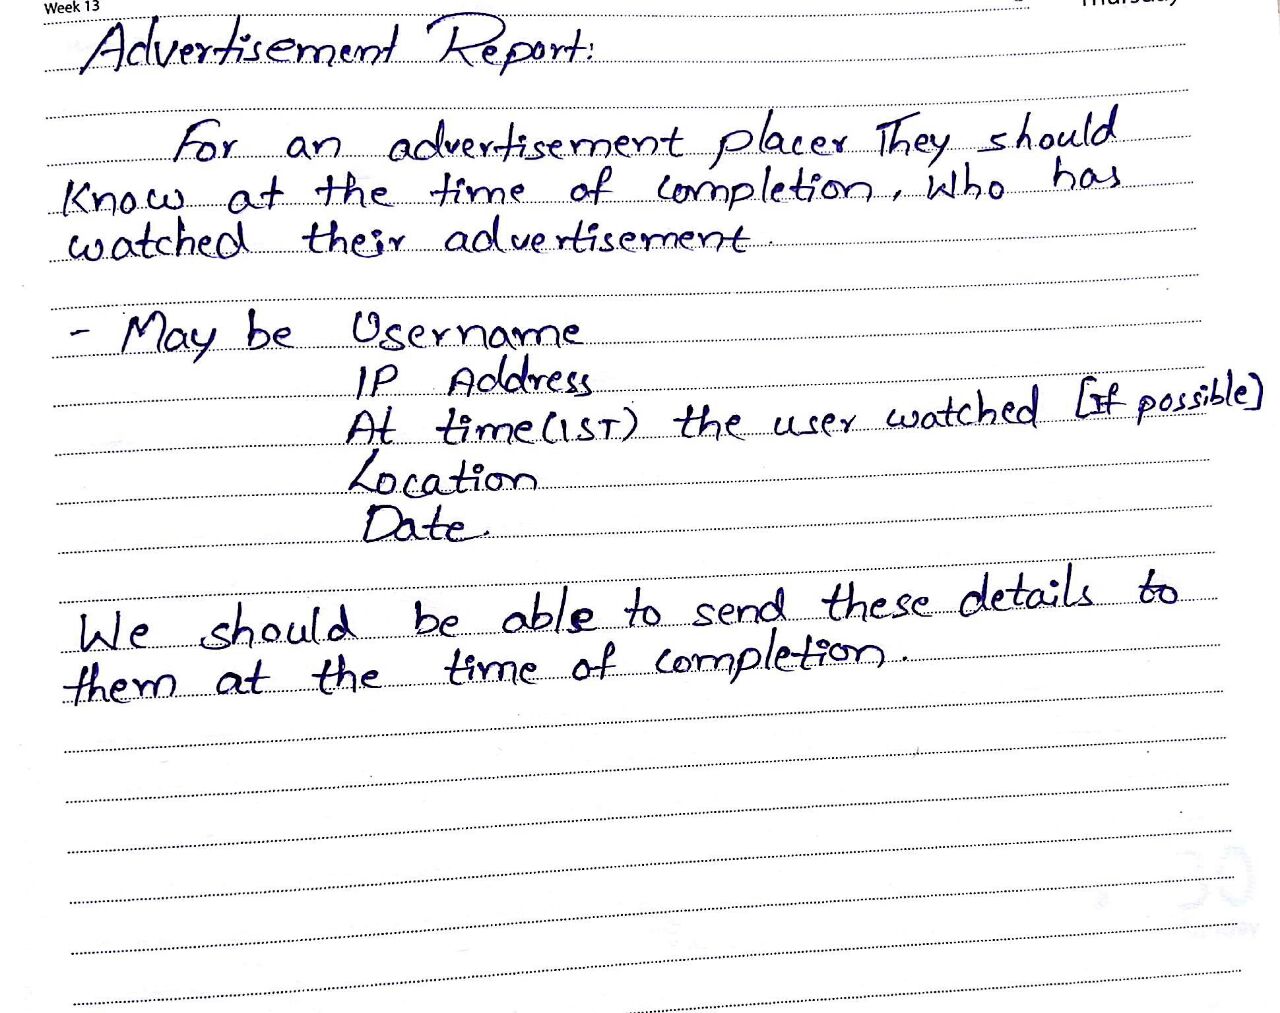 Week 13
Advertisement Report:
For an advertisement placer They should
Know at the time of completion, who has
watched their advertisement.
- May be Username
IP Address
At time (IST) the user watched [If possible]
Location
Date.
We should be able to send these details to
them at the time of completion.